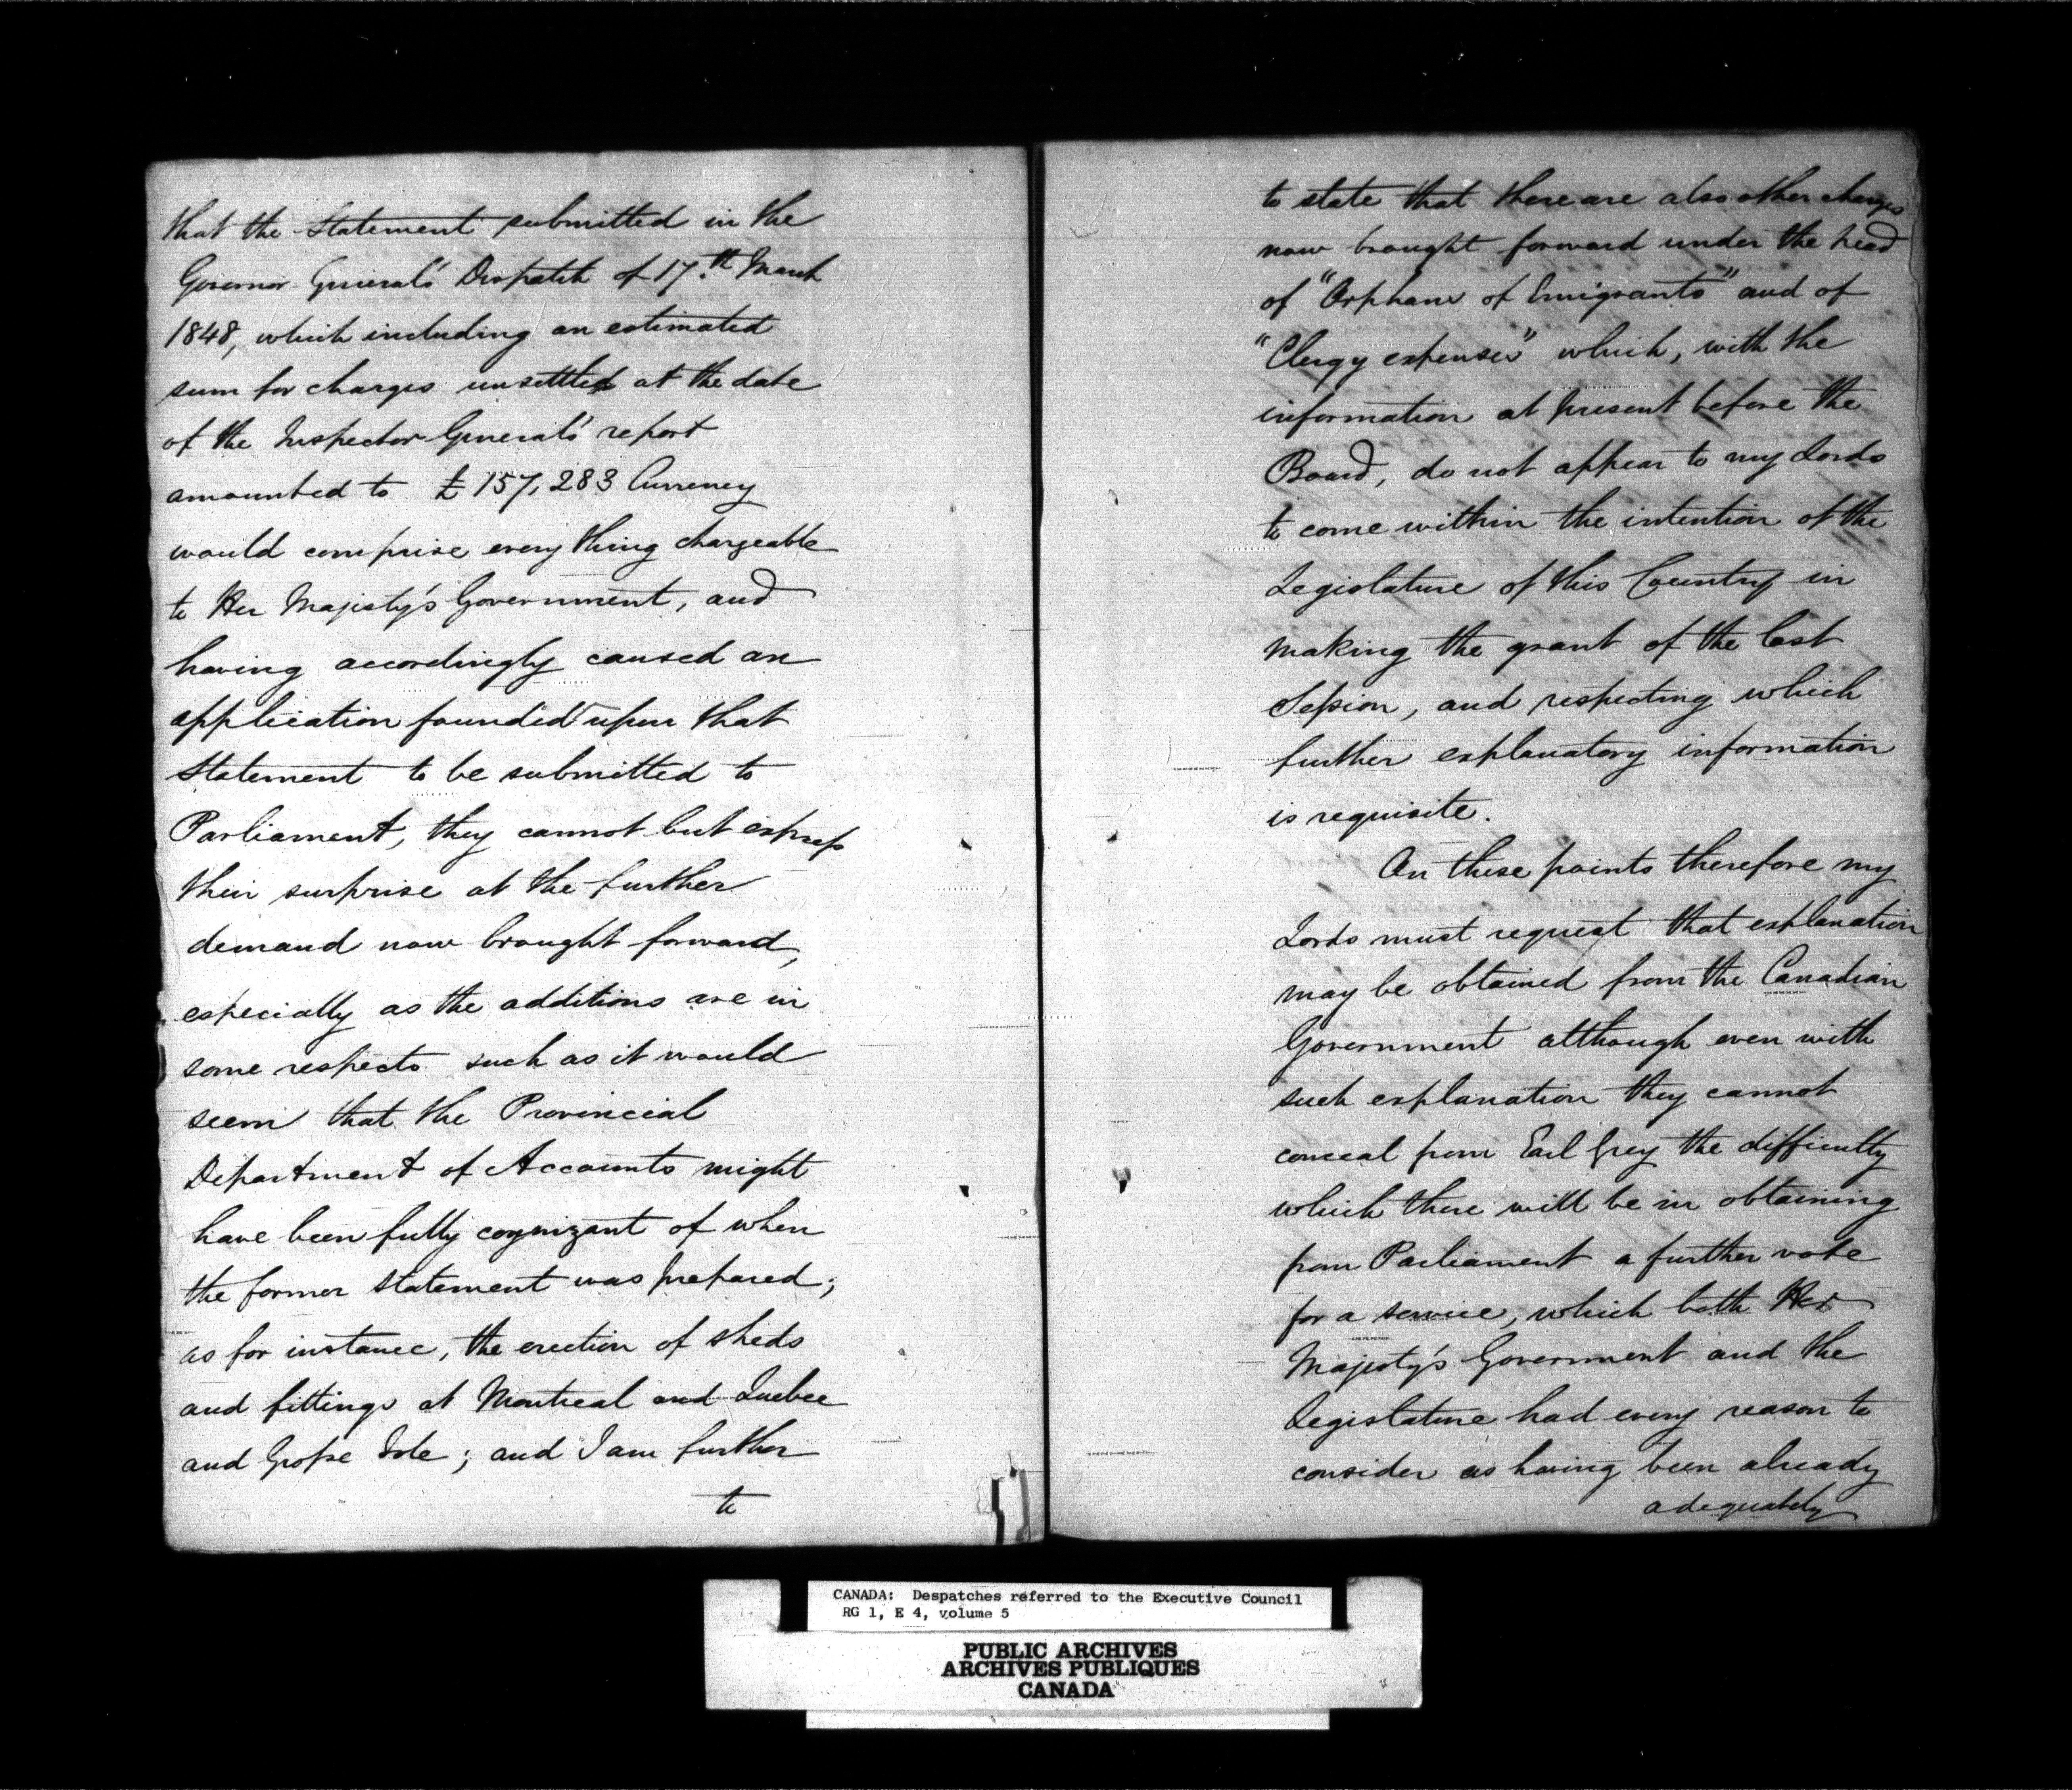 that the Statement submitted in the
Governor General's Dispatch of 17.th March
1848, which including an estimated
sum for charges unsettled at the date
of the Inspector General's report
amounted to £157,283 Currency
would comprise every thing chargeable
to Her Majesty's Government, and
having accordingly caused an
application founded upon that
Statement to be submitted to
Parliament, they cannot but express
their surprise at the further
demand now brought forward,
especially as the additions are in
some respects such as it would
seem that the Provincial
Department of Accounts might
have been fully cognizant of when
the former Statement was prepared;
as for instance, the erection of sheds
and fittings at Montreal and Quebec
and Grosse Isle; and I am further
to
to state that there are also other charges
now brought forward under the head
of "Orphans of Emigrants" and of
"Clergy expenses" which, with the
information at present before the
Board, do not appear to my Lords
to come within the intention of the
Legislature of this Country in
making the grant of the last
Session, and respecting which
further explanatory information
is requisite.
On these points therefore my
Lords must request that explanation
may be obtained from the Canadian
Government although even with
such explanation they cannot
conceal from Earl Grey the difficulty
which there will be in obtaining
from Parliament a further vote
for a service, which both Her
Majesty's Government and the
Legislature had every reason to
consider as having been already
adequately
CANADA: Despatches referred to the Executive Council
RG 1, E 4, volume 5
PUBLIC ARCHIVES
ARCHIVES PUBLIQUES
CANADA